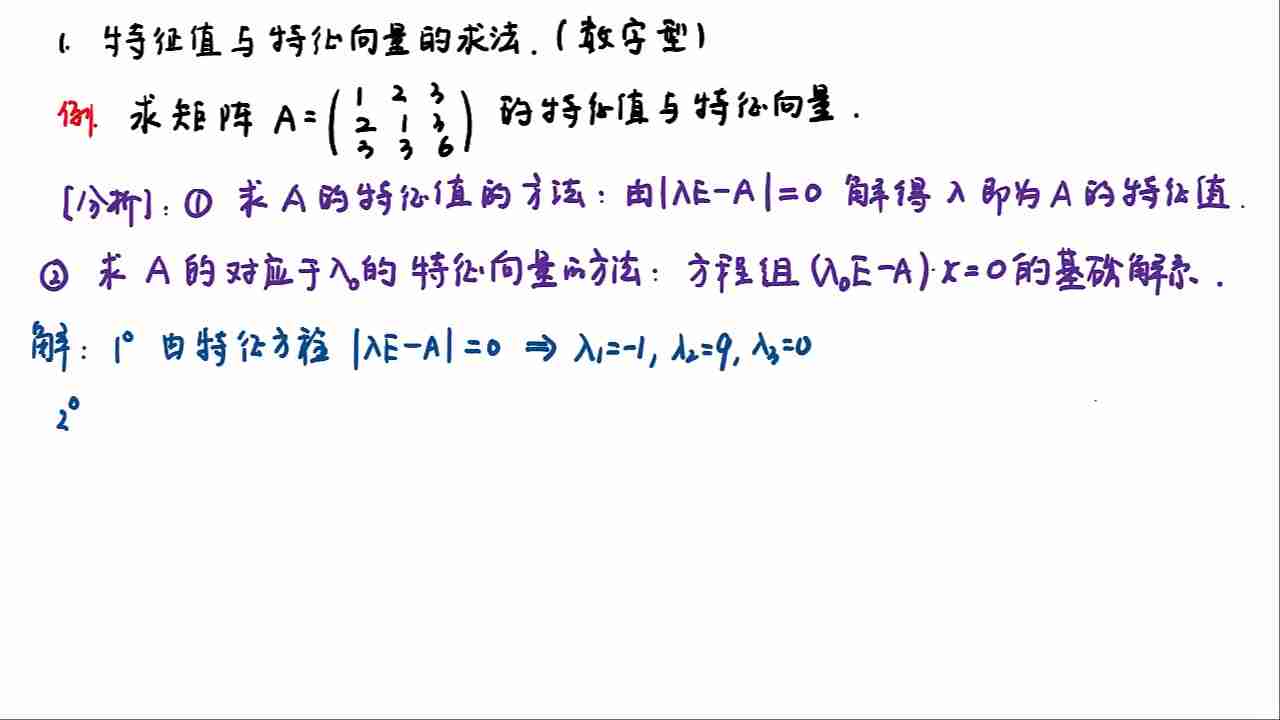 1. 特征值与特征向量的求法.(数字型)
例. 求矩阵 A=(1 2 3
2 1 3
3 3 6) 的特征值与特征向量.
[分析]: ① 求 A 的特征值的方法: 由|λE-A|=0 解得 λ 即为 A 的特征值.
② 求 A 的对应于λ₀的特征向量的方法: 方程组 (λ₀E-A)·x=0 的基础解系.
解: 1° 由特征方程 |λE-A|=0 ⇒ λ₁=-1, λ₂=9, λ₃=0
2°